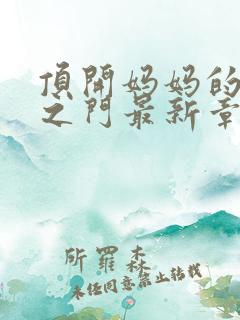 頂開妈妈的
之门最新章
所羅森
未任同意禁止转载